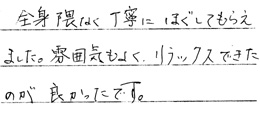 全身隈なく丁寧にほぐしてもらえ
ました。雰囲気もよく、リラックスできた
のが良かったです。